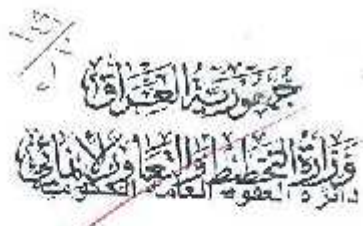 جمهورية العراق
وزارة التخطيط والتعاون الإنمائي
دائرة العقود العامة الحكومية